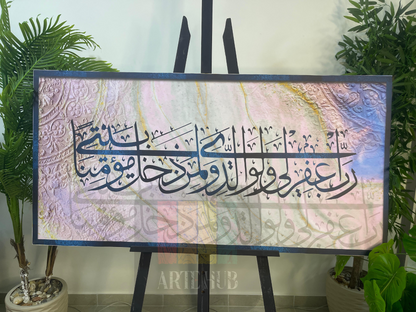 رَبِّ اغْفِرْ لِي وَلِوَالِدَيَّ وَلِمَن دَخَلَ بَيْتِيَ مُؤْمِنًا
ARTEHUB